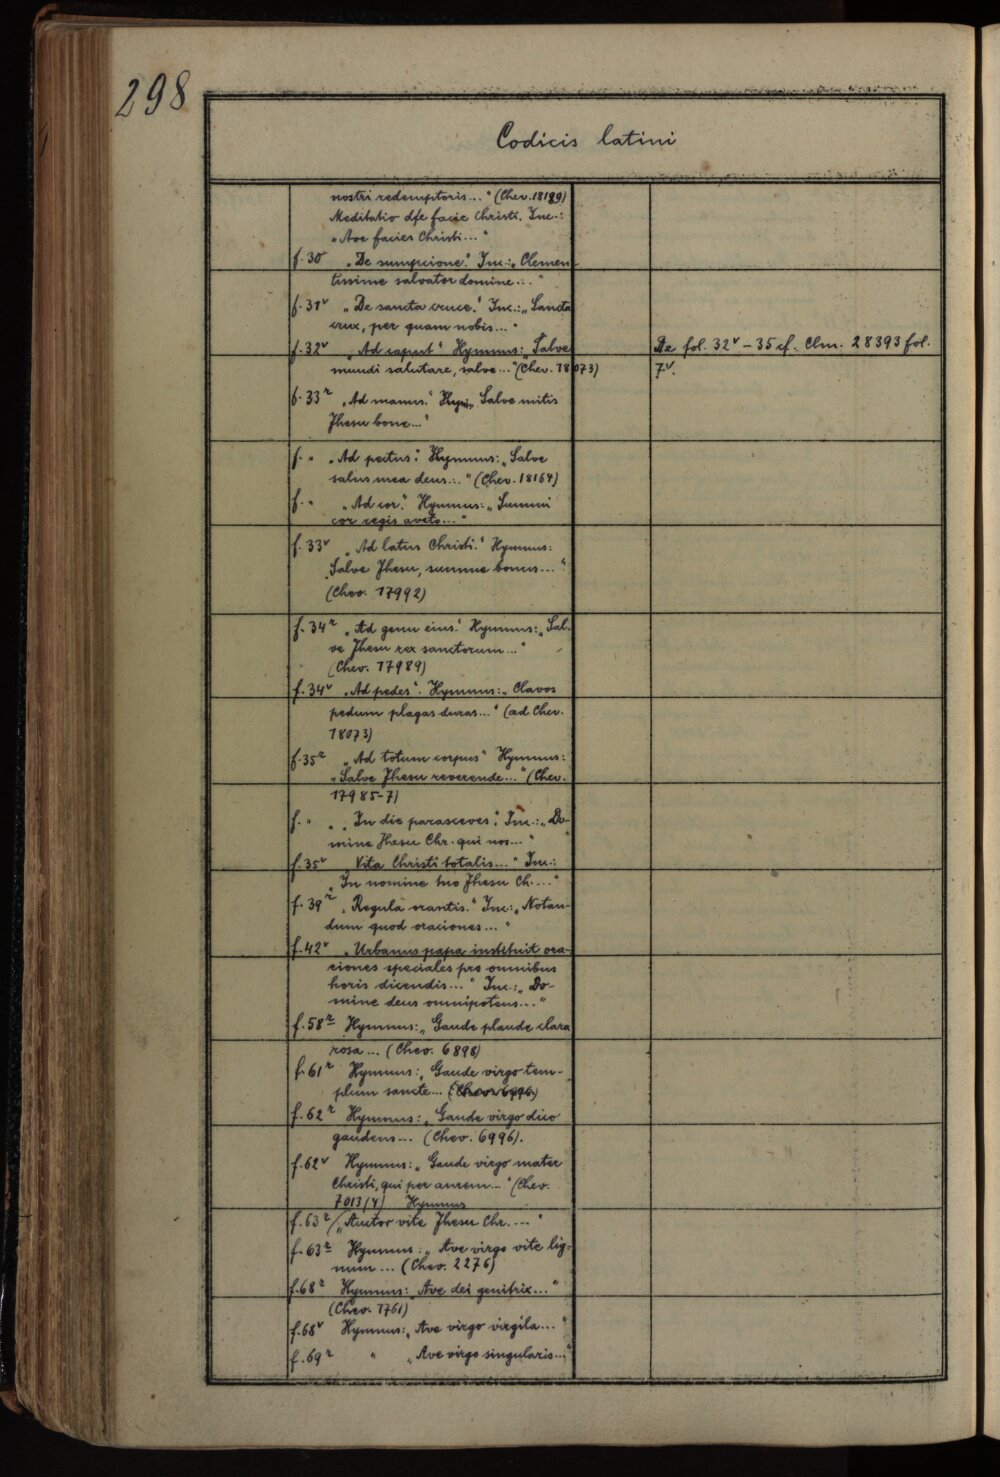 298
Codicis latini
nostri redemptoris..." (Chev. 18189)
Meditatio de facie Christi. Inc.:
"Ave facies Christi..."
f. 30 "De sumpcione." Inc.: "Clemen-
tissime salvator domine..."
f. 31v "De sancta cruce." Inc.: "Sancta
crux, per quam nobis..."
f. 32v "Ad caput" Hymnus: "Salve
mundi salutare, salve..." (Chev. 18073)
De fol. 32v - 35 cf. Clm. 28393 fol.
7v.
f. 33r "Ad manus." Hymn. "Salve mitis
Jhesu bone..."
f. " "Ad pectus". Hymnus: "Salve
salus mea deus..." (Chev. 18164)
f. " "Ad cor." Hymnus: "Summi
cor regis aveto..."
f. 33v "Ad latus Christi." Hymnus:
"Salve Jhesu, summe bonus..."
(Chev. 17992)
f. 34r "Ad genu eius." Hymnus: "Sal-
ve Jhesu rex sanctorum..."
(Chev. 17989)
f. 34v "Ad pedes". Hymnus: "Clavos
pedum plagas duras..." (ad Chev.
18073)
f. 35r "Ad totum corpus" Hymnus:
"Salve Jhesu reverende..." (Chev.
17985-7)
f. " "In die parasceves". Inc.: "Do-
mine Jhesu Chr. qui nos..."
f. 35v "Vita Christi totalis..." Inc.:
"In nomine tuo Jhesu Ch...."
f. 39r "Regula orantis." Inc.: "Notan-
dum quod oraciones..."
f. 42v "Urbanus papa instituit ora-
ciones speciales pro omnibus
horis dicendis..." Inc.: "Do-
mine deus omnipotens..."
f. 58r Hymnus: "Gaude plaude clara
rosa... (Chev. 6898)
f. 61r Hymnus: "Gaude virgo tem-
plum sancte... (Chev. 6996)
f. 62r Hymnus: "Gaude virgo dico
gaudens... (Chev. 6996).
f. 62v Hymnus: "Gaude virgo mater
Christi, qui per aurem..." (Chev.
7013/4) Hymnus
f. 63r "Auctor vite Jhesu Chr...."
f. 63r Hymnus: "Ave virgo vite lig-
num... (Chev. 2276)
f. 68r Hymnus: "Ave dei genitrix..."
(Chev. 1761)
f. 68v Hymnus: "Ave virgo virgula..."
f. 69r " "Ave virgo singularis..."